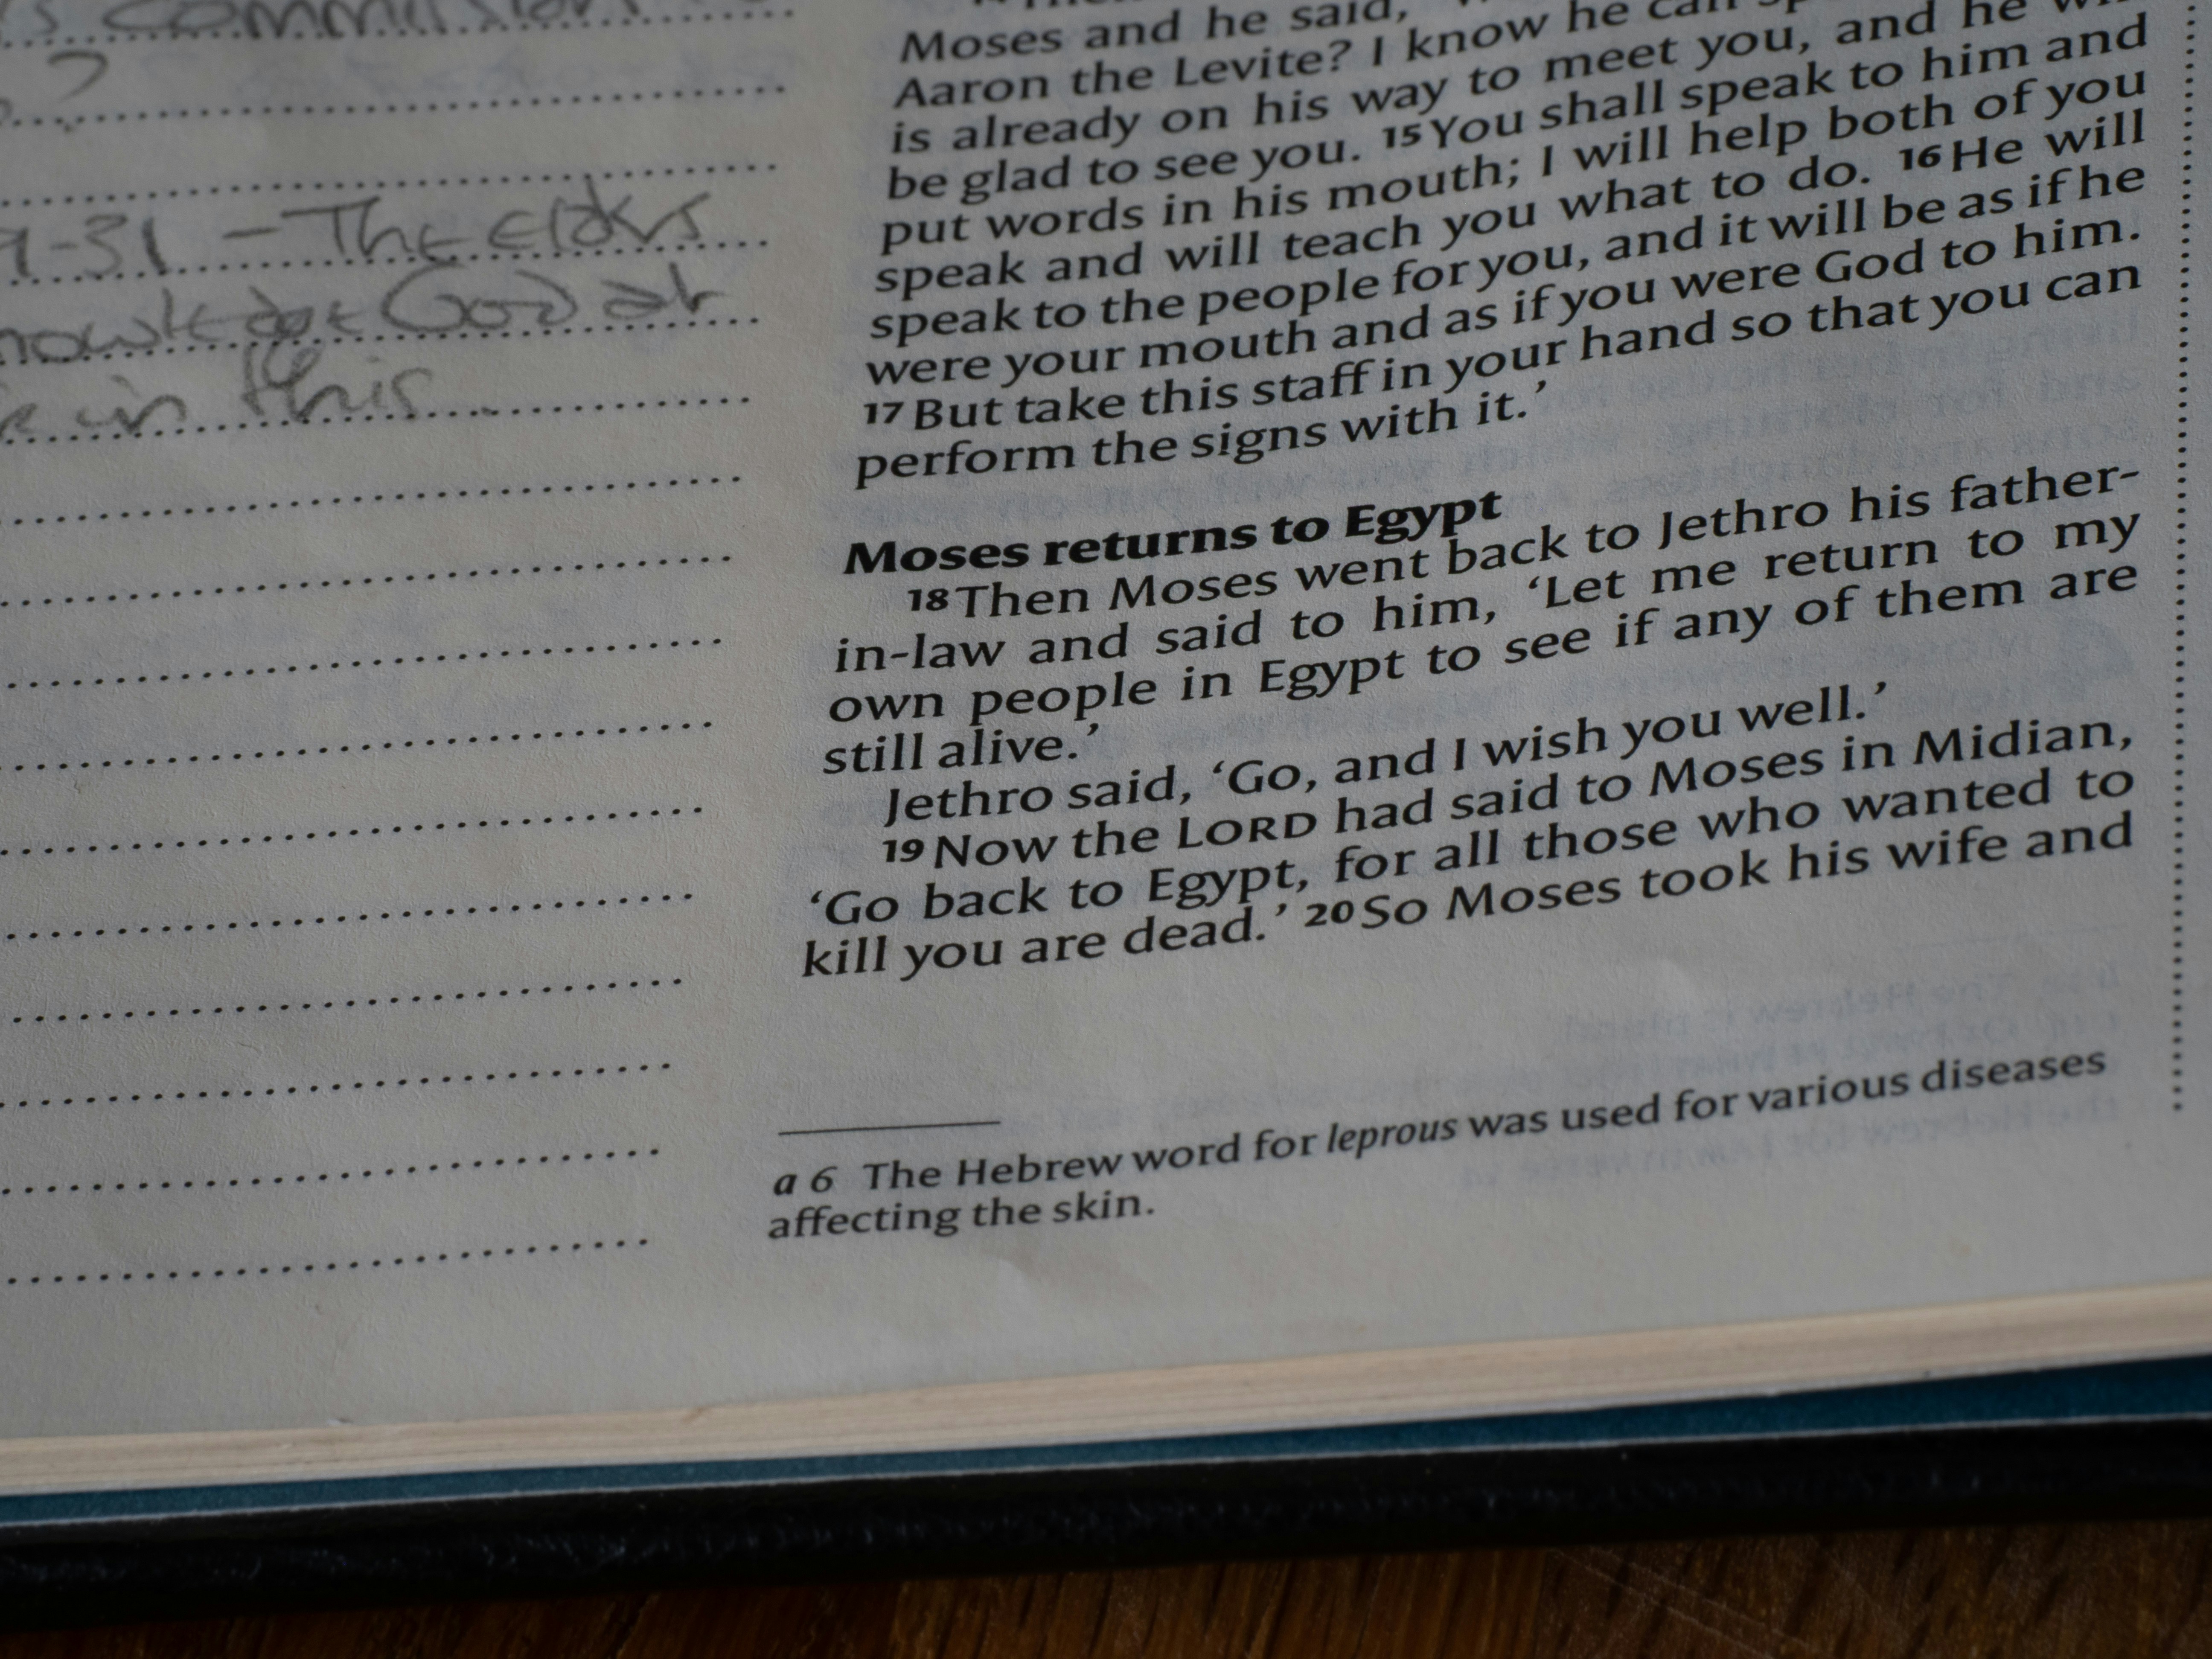 commission
?
9-31 - The elders
God at
in this
Moses and he said,
Aaron the Levite? I know he can
is already on his way to meet you, and he
be glad to see you. 15 You shall speak to him and
put words in his mouth; I will help both of you
speak and will teach you what to do. 16 He will
speak to the people for you, and it will be as if he
were your mouth and as if you were God to him.
17 But take this staff in your hand so that you can
perform the signs with it.’
Moses returns to Egypt
18 Then Moses went back to Jethro his father-
in-law and said to him, ‘Let me return to my
own people in Egypt to see if any of them are
still alive.’
Jethro said, ‘Go, and I wish you well.’
19 Now the LORD had said to Moses in Midian,
‘Go back to Egypt, for all those who wanted to
kill you are dead.’ 20 So Moses took his wife and
a 6 The Hebrew word for leprous was used for various diseases
affecting the skin.